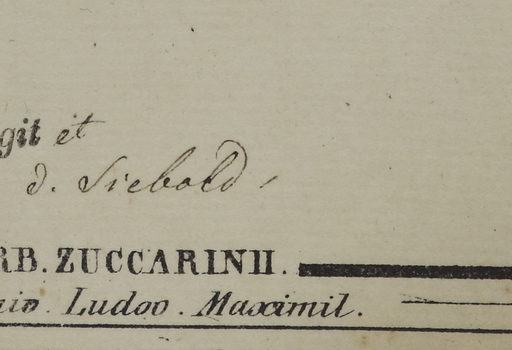 git et
d. Siebold.
RB. ZUCCARINII.
Ludov. Maximil.